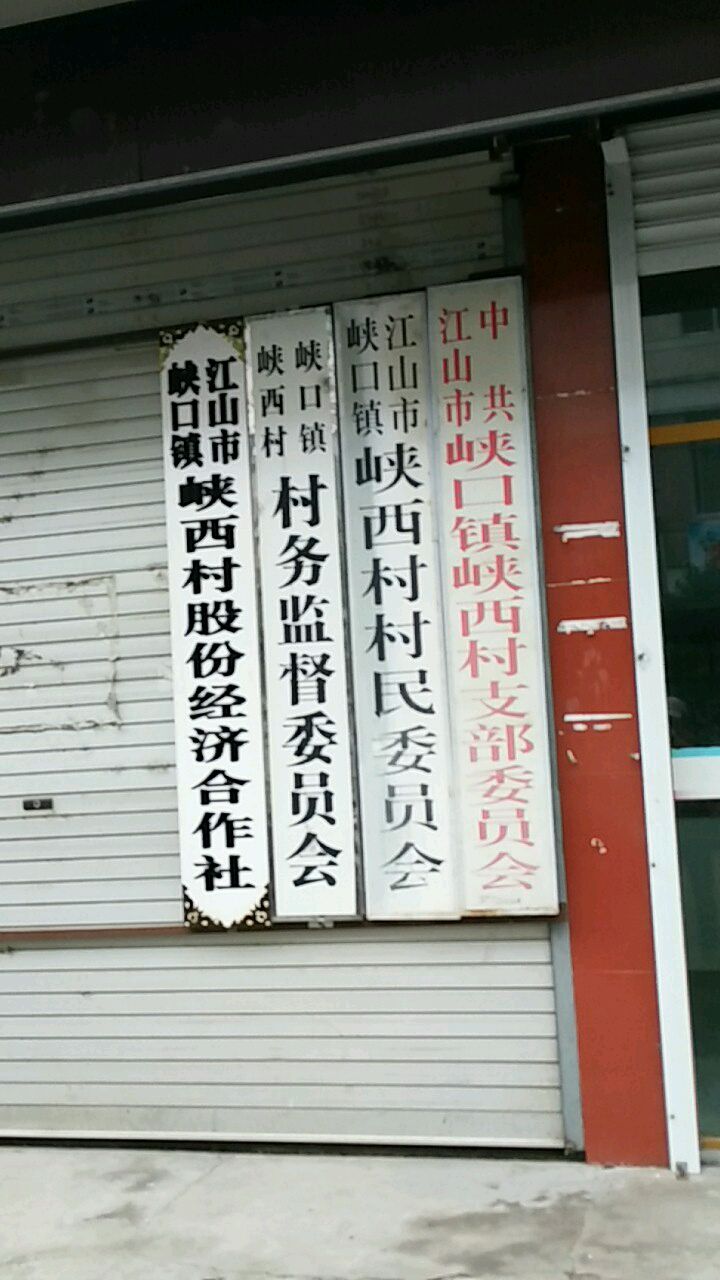 江山市
峡口镇
峡西村股份经济合作社
峡口镇
峡西村
村务监督委员会
江山市
峡口镇
峡西村村民委员会
中共
江山市
峡口镇峡西村支部委员会